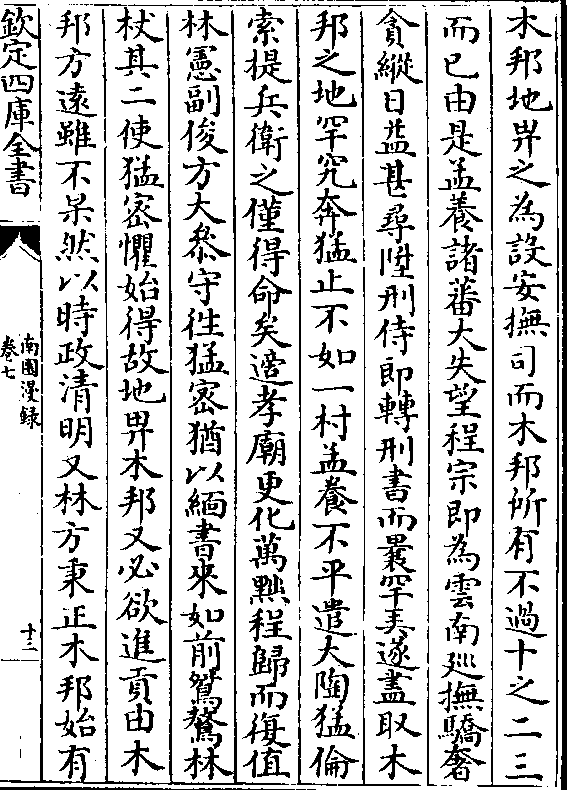 木邦地畀之為設安撫司而木邦所有不過十之二三
而已由是孟養諸蕃大失望程宗即為雲南廵撫驕奢
貪縱日益甚尋陞刑侍即轉刑書而曩罕弄遂盡取木
邦之地罕究奔猛止不如一村孟養不平遣大陶猛倫
索提兵衛之僅得命矣適孝廟更化萬㸃程歸而復值
林憲副俊方大叅守徃猛密猶以緬書來如前鴛鶩林
杖其二使猛密懼始得故地畀木邦又必欲進貢由木
邦方遠雖不果然以時政清明又林方秉正木邦始有
欽定四庫全書
南園漫録
卷七
十二